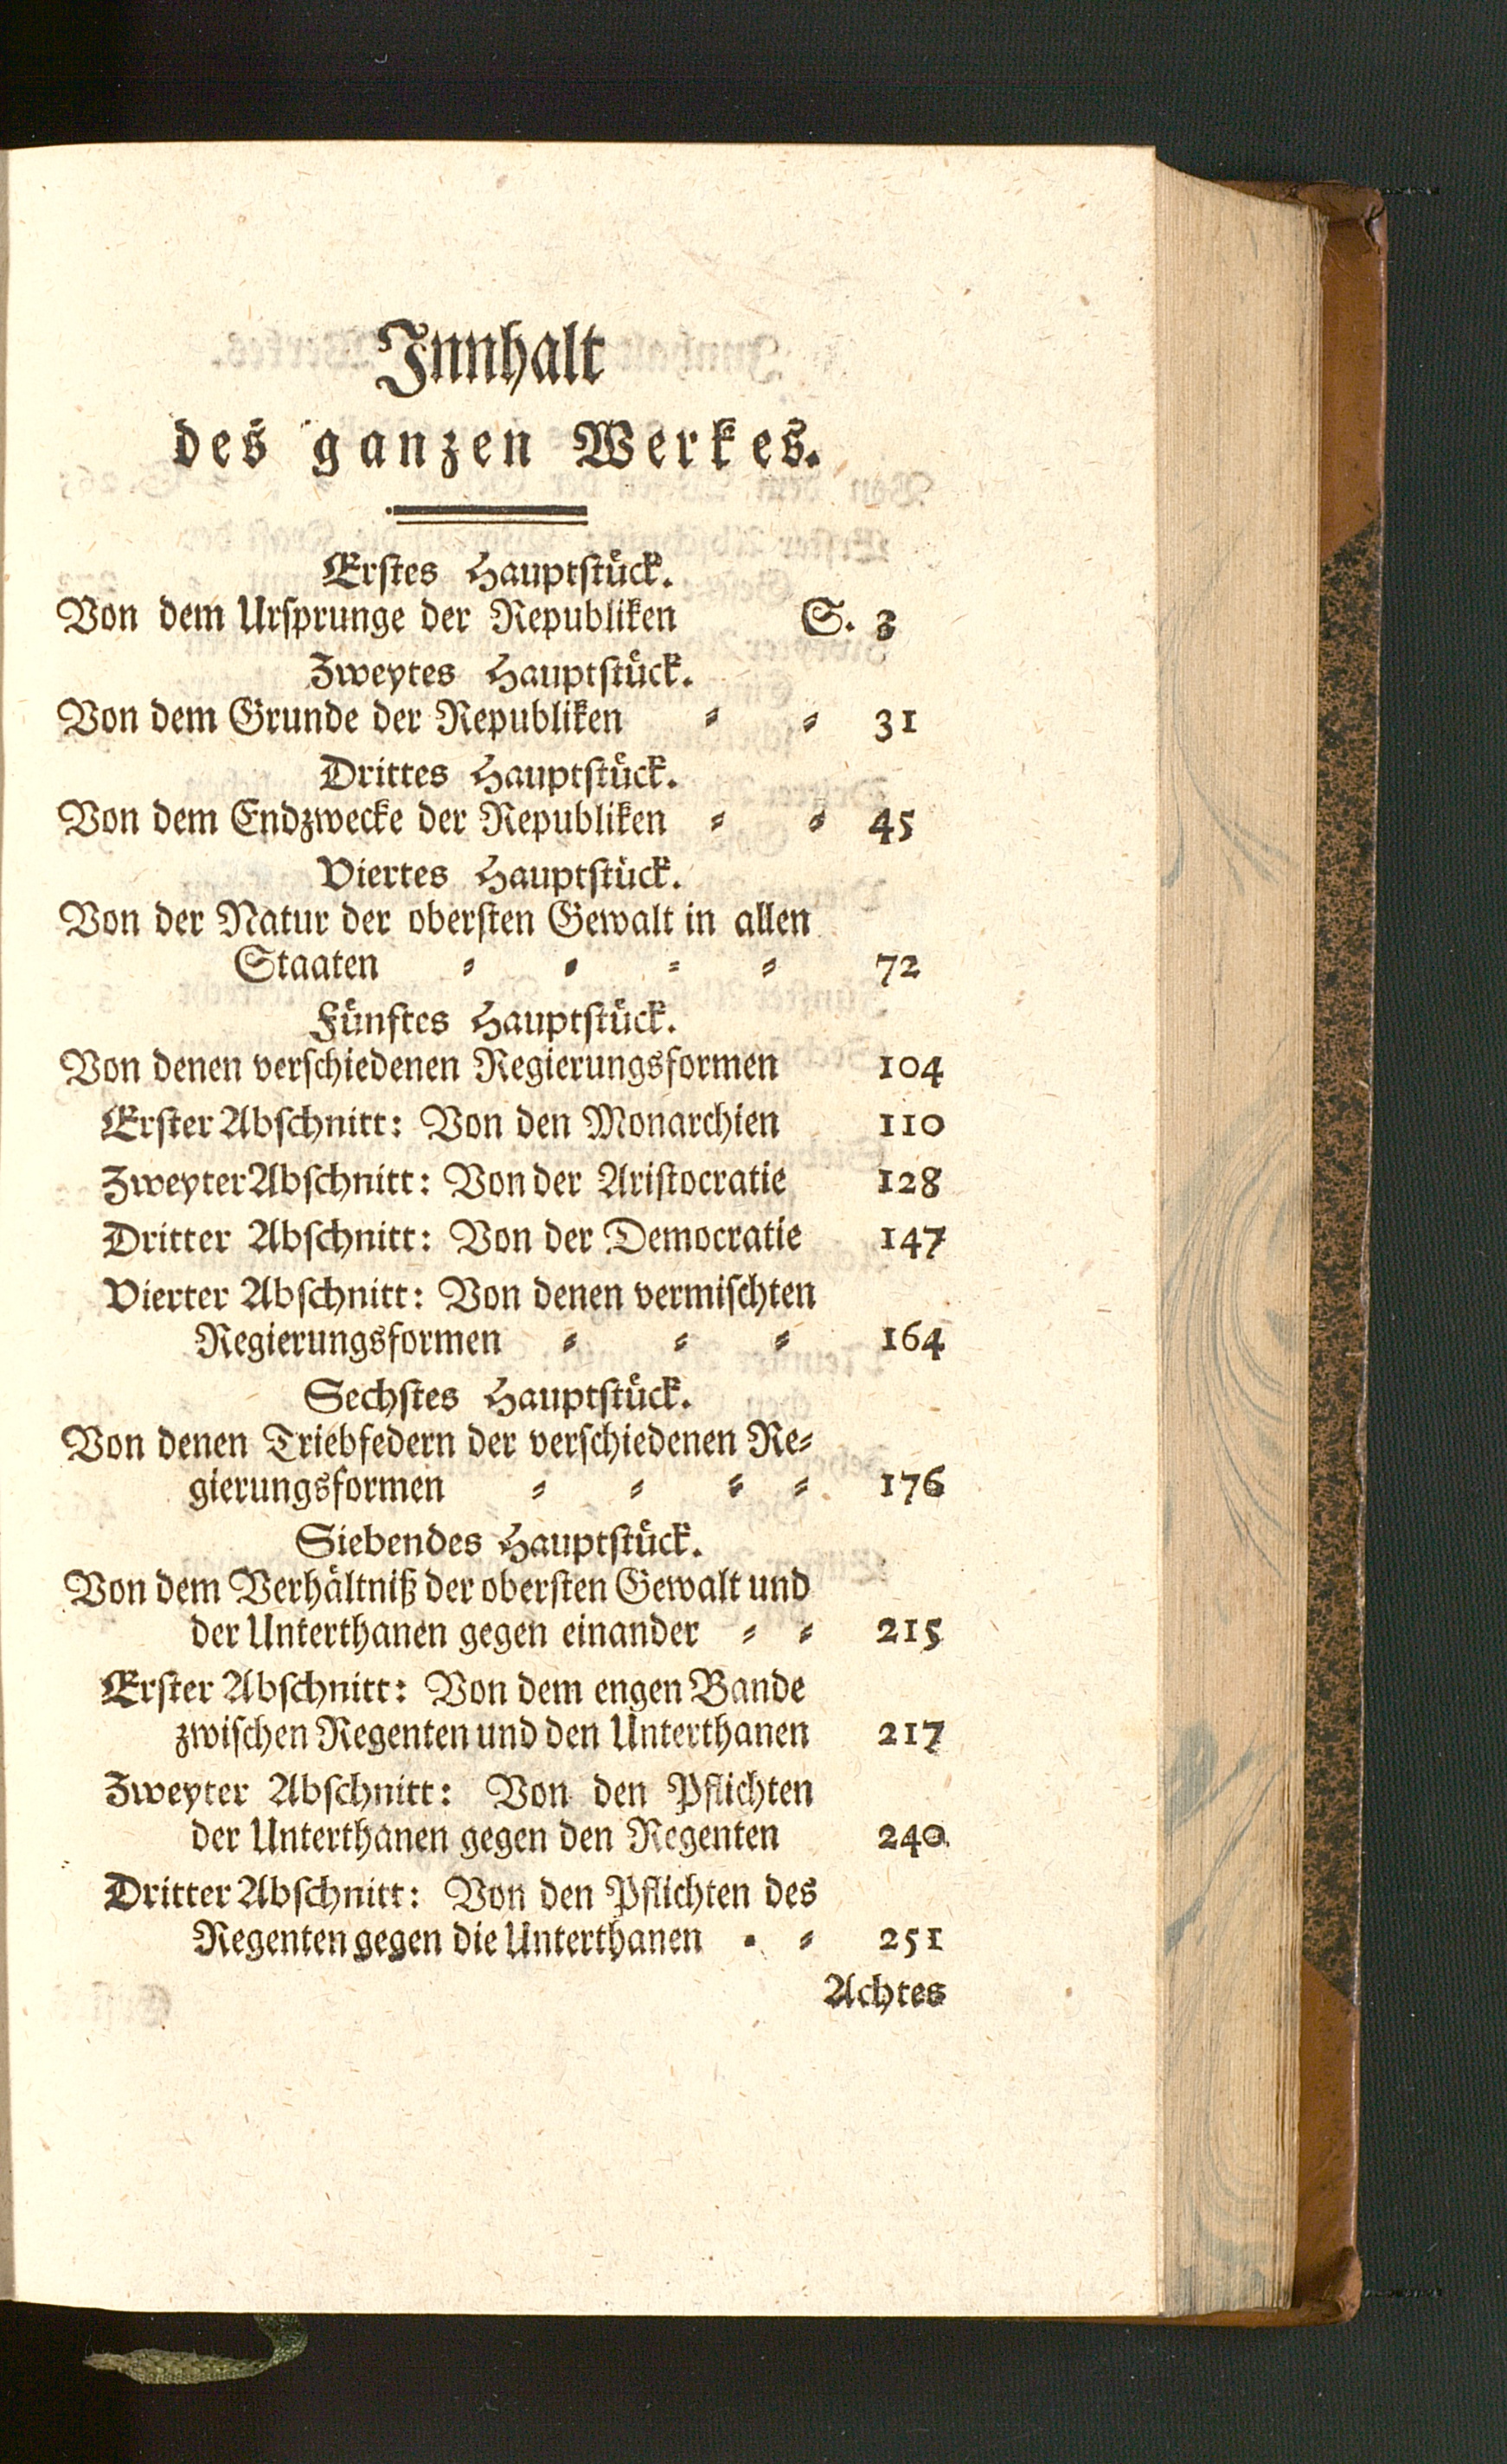 Innhalt
des ganzen Werkes.
Erstes Hauptstück.
Von dem Ursprunge der Republiken S. 3
Zweytes Hauptstück.
Von dem Grunde der Republiken = = 31
Drittes Hauptstück.
Von dem Endzwecke der Republiken = = 45
Viertes Hauptstück.
Von der Natur der obersten Gewalt in allen
Staaten = = = = 72
Fünftes Hauptstück.
Von denen verschiedenen Regierungsformen 104
Erster Abschnitt: Von den Monarchien 110
Zweyter Abschnitt: Von der Aristocratie 128
Dritter Abschnitt: Von der Democratie 147
Vierter Abschnitt: Von denen vermischten
Regierungsformen = = = 164
Sechstes Hauptstück.
Von denen Triebfedern der verschiedenen Re=
gierungsformen = = = = 176
Siebendes Hauptstück.
Von dem Verhältniß der obersten Gewalt und
der Unterthanen gegen einander = = 215
Erster Abschnitt: Von dem engen Bande
zwischen Regenten und den Unterthanen 217
Zweyter Abschnitt: Von den Pflichten
der Unterthanen gegen den Regenten 240
Dritter Abschnitt: Von den Pflichten des
Regenten gegen die Unterthanen = = 251
Achtes